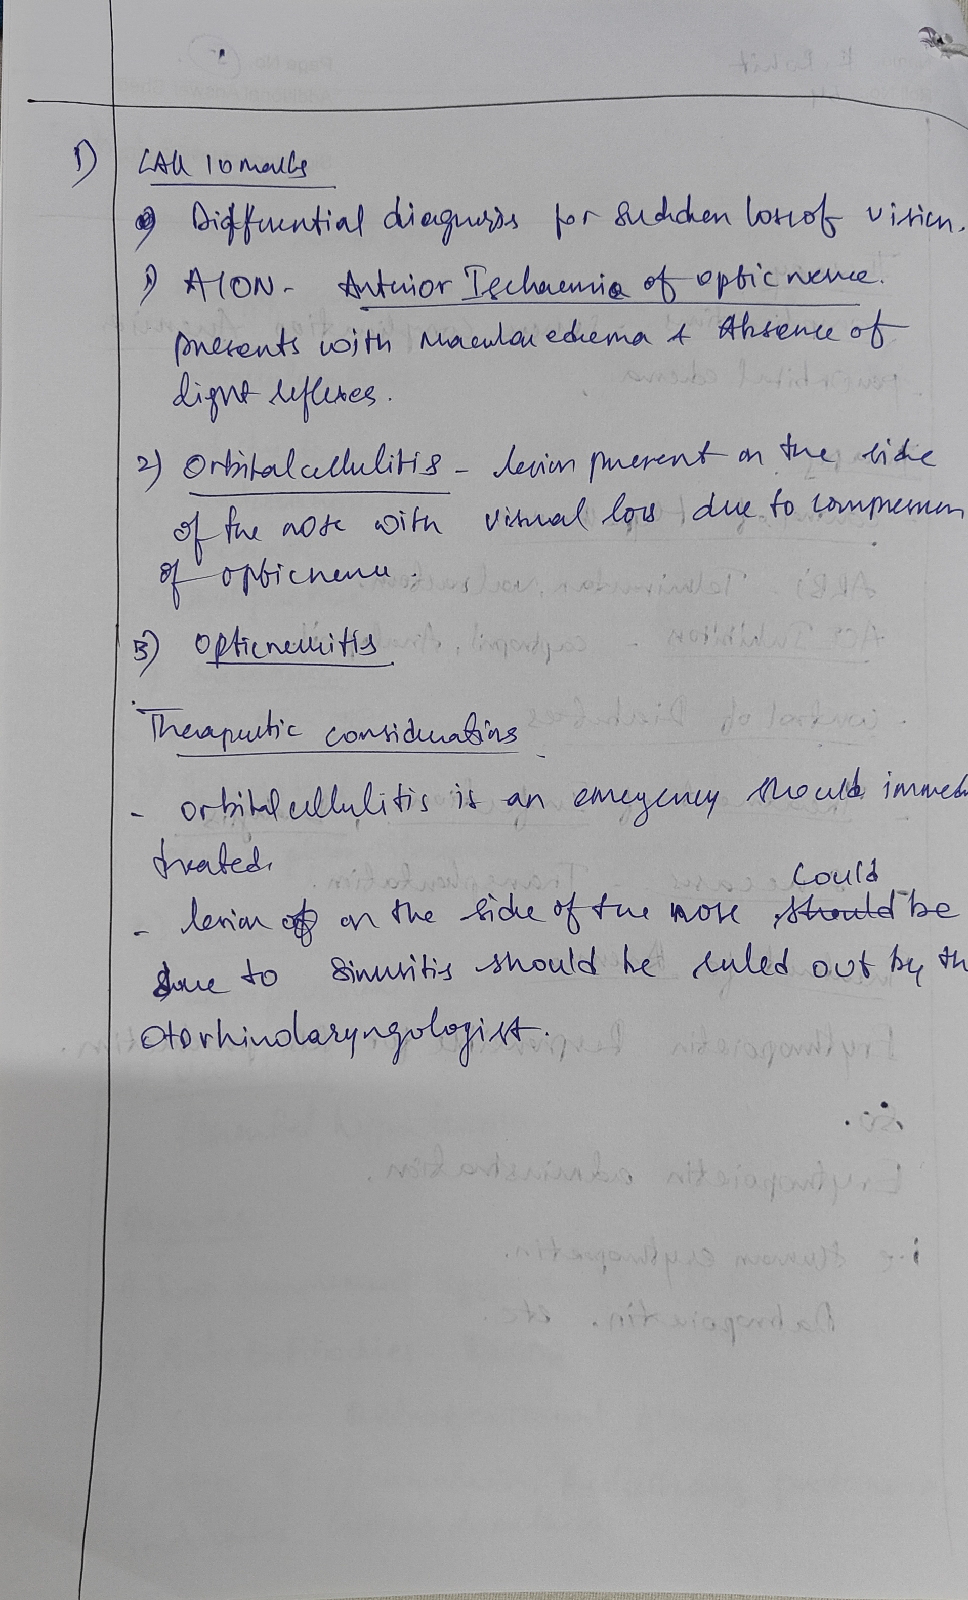 1) LAQ 10 marks
Differential diagnosis for Sudden loss of vision.
1) AION - Anterior Ischaemia of optic nerve.
presents with Macular edema & Absence of
light reflexes.
2) Orbital cellulitis - lesion present on the side
of the nose with visual loss due to compression
of optic nerve.
3) Optic neuritis
Therapeutic considerations
- orbital cellulitis is an emergency should immed
treated.
could
- lesion on the side of the nose should be
due to sinusitis should be ruled out by th
Otorhinolaryngologist.